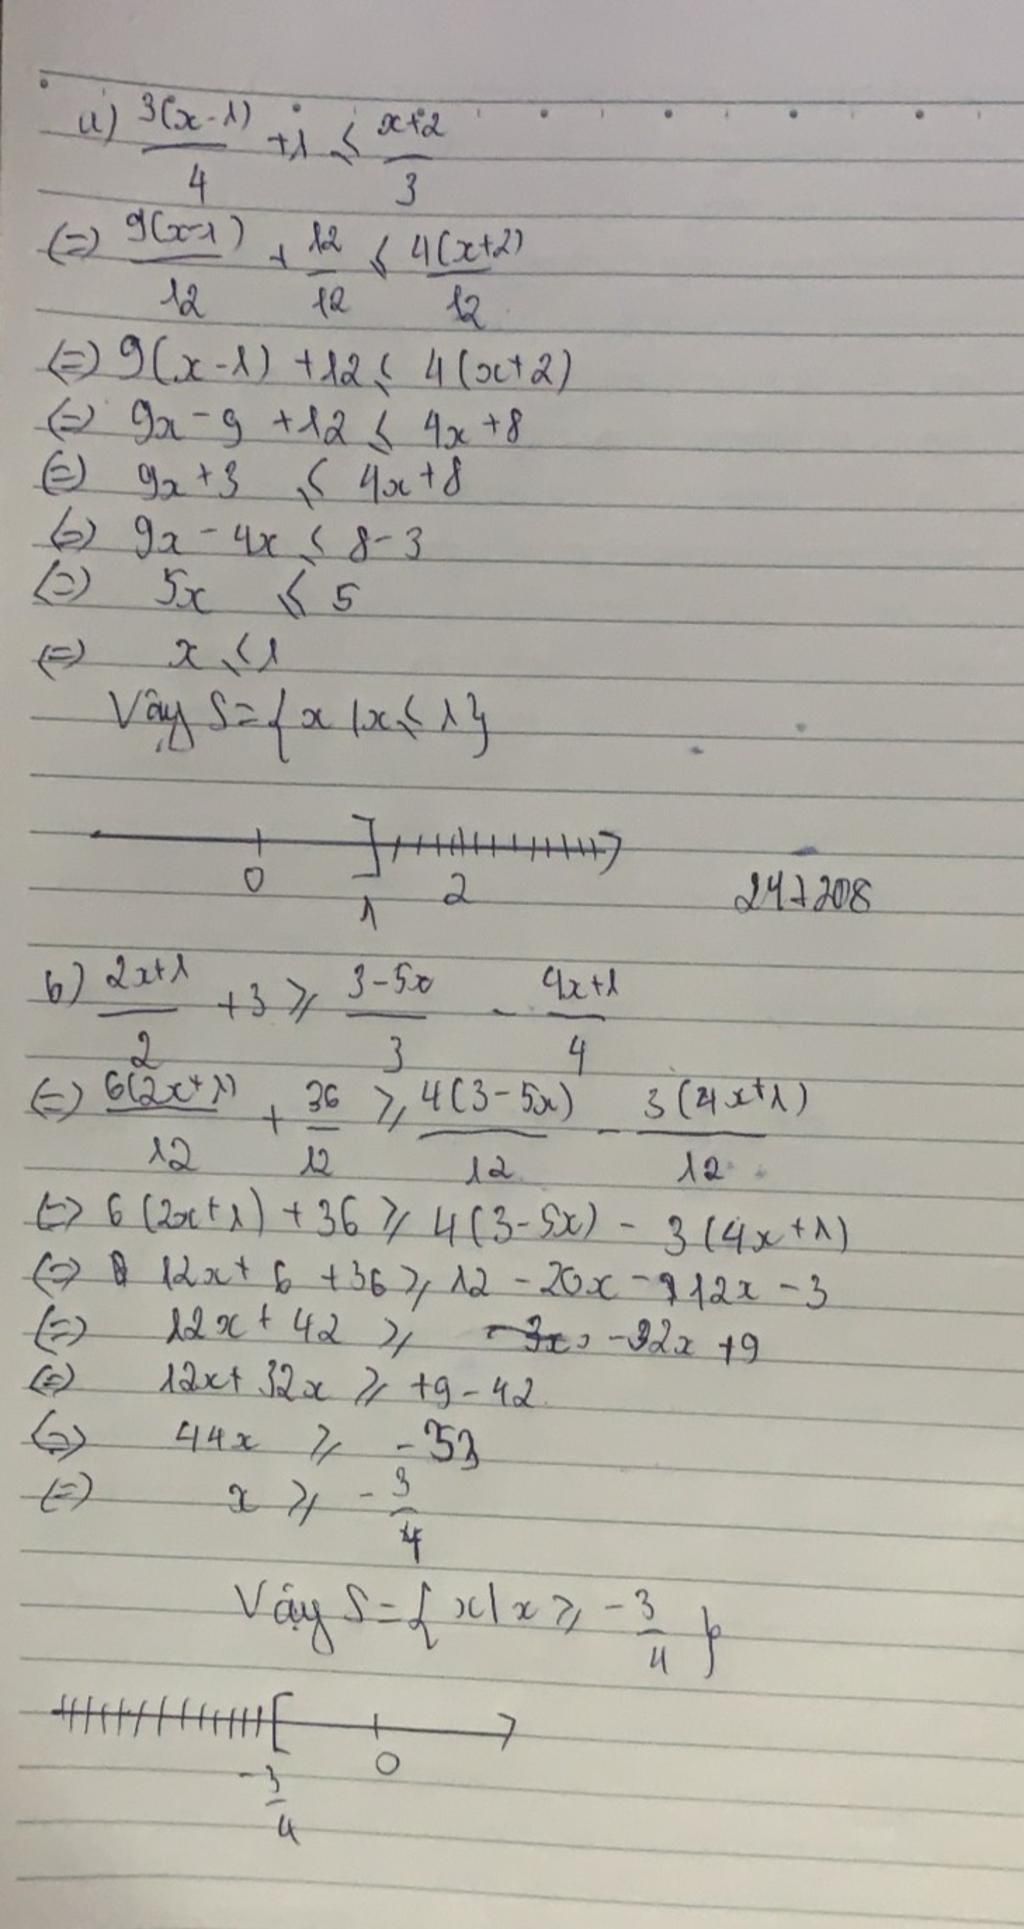 a) 3(x-1)/4 +1 ≤ x+2/3
(=) 9(x-1)/12 + 12/12 ≤ 4(x+2)/12
(=) 9(x-1) +12 ≤ 4(x+2)
(=) 9x-9 +12 ≤ 4x+8
(=) 9x+3 ≤ 4x+8
(=) 9x-4x ≤ 8-3
(=) 5x ≤ 5
(=) x ≤ 1
Vậy S={x|x≤1}
0 1 2
247208
b) 2x+1/2 +3 ≥ 3-5x/3 - 4x+1/4
(=) 6(2x+1)/12 + 36/12 ≥ 4(3-5x)/12 - 3(4x+1)/12
(=) 6(2x+1)+36 ≥ 4(3-5x) - 3(4x+1)
(=) 12x+6+36 ≥ 12-20x-12x-3
(=) 12x+42 ≥ -32x+9
(=) 12x+32x ≥ +9-42
(=) 44x ≥ -33
(=) x ≥ -3/4
Vậy S={x|x≥-3/4}
-3/4 0